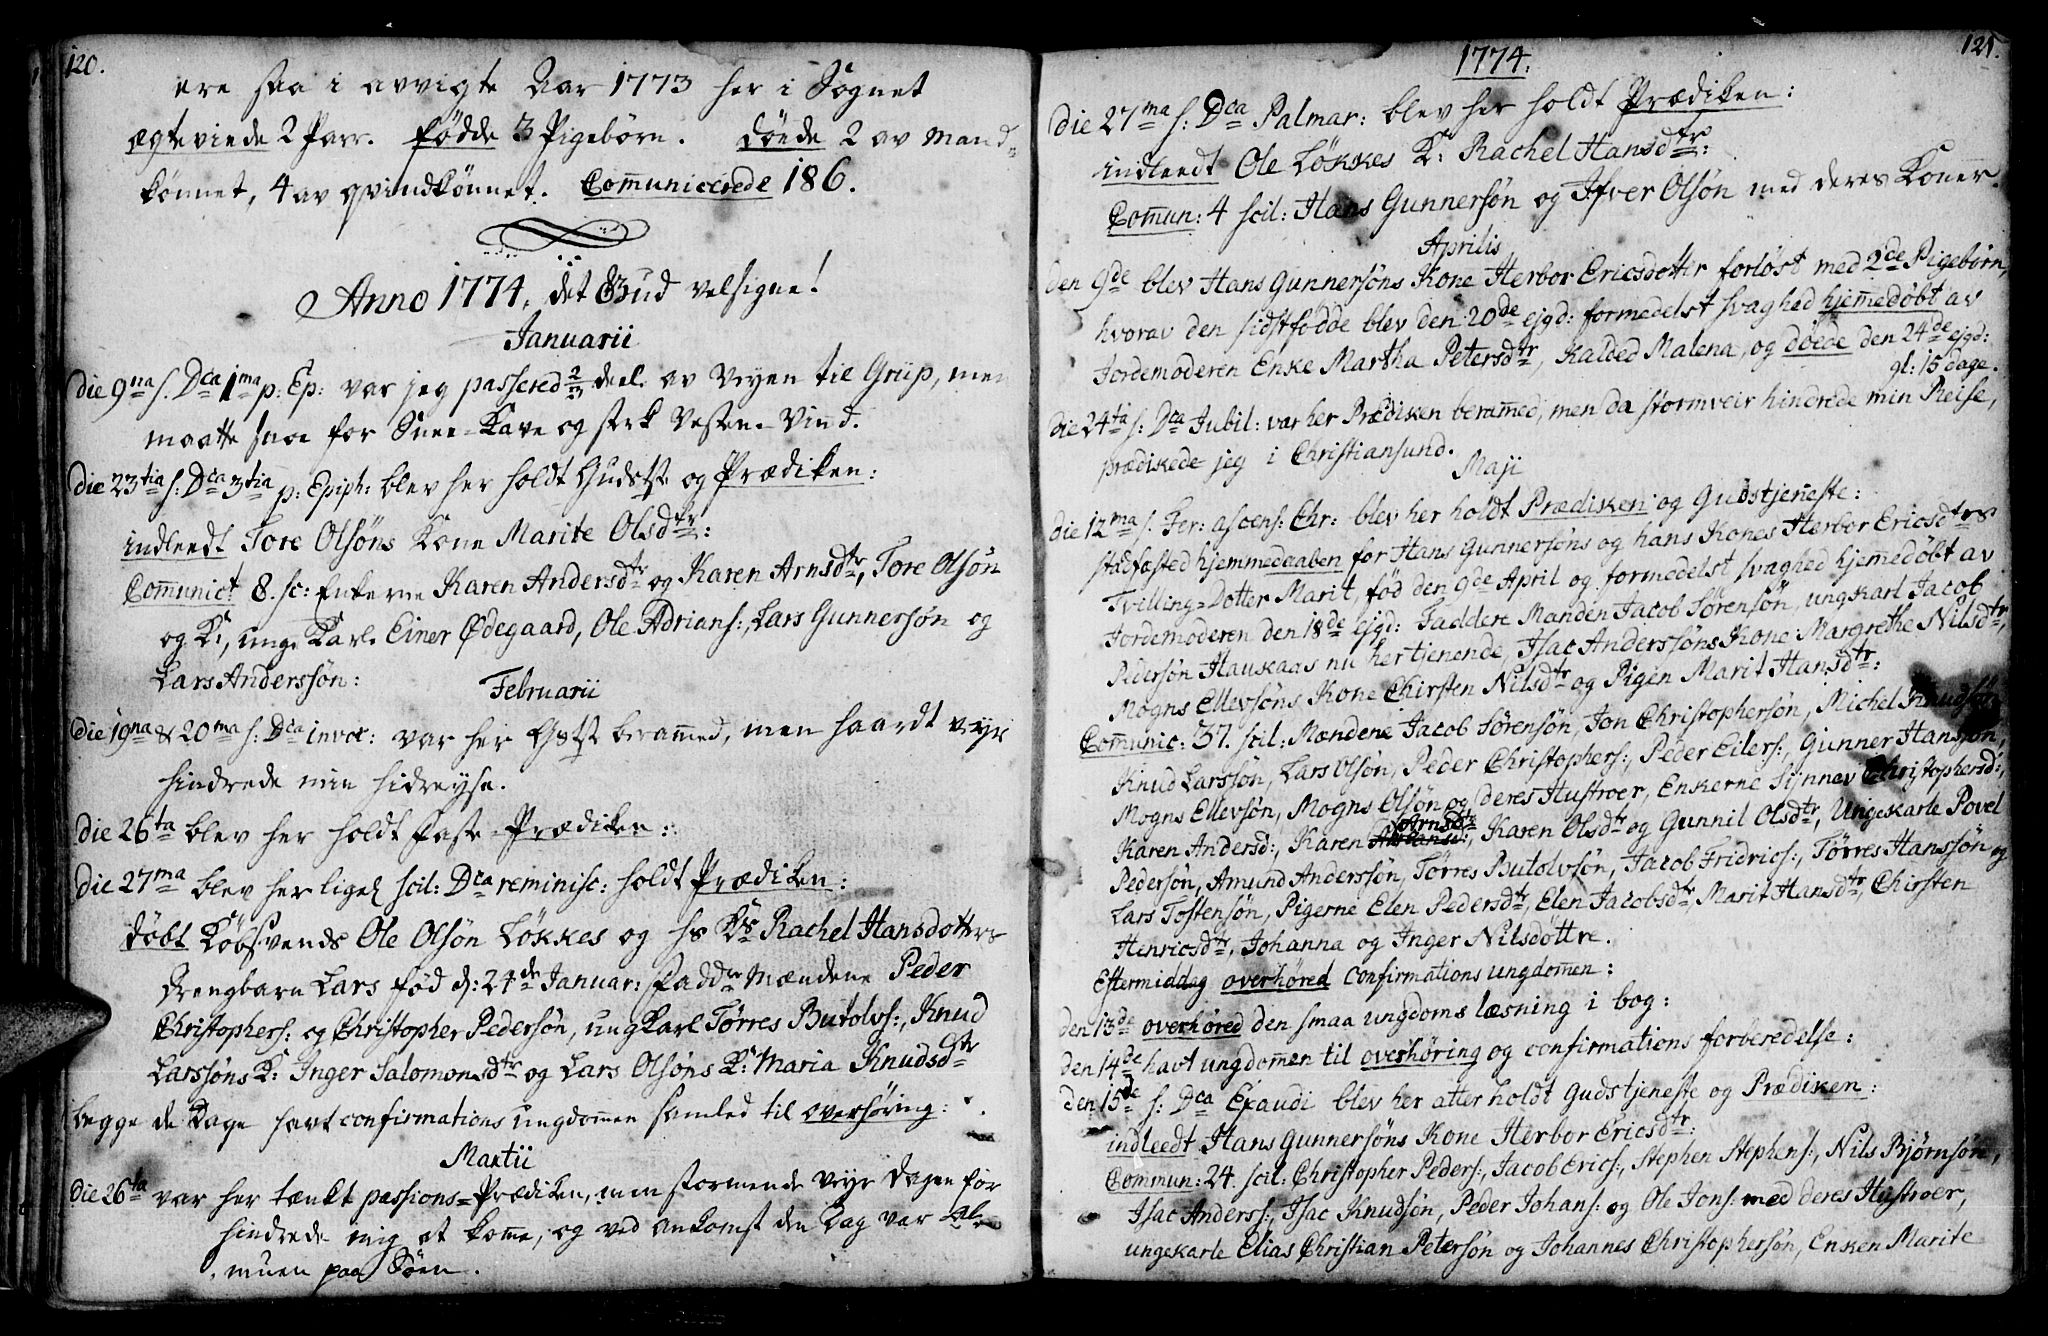 120.
ere saa i avvigte Aar 1773 her i Sognet
ægteviede 2 Parr. fødde 3 Pigebörn. döede 2 av Mand-
könnet, 4 av qvindkönnet. Com̅unicerede 186.
Anno 1774, det Gud velsigne!
Januarii
die 9na s: Dca 1ma p: Ep: var jeg passered 2/3 deel av Veyen til Griip, men
maatte snoe for Snee-Kave og sterk Vesten-Vind.
die 23tia s: Dca 3tia p: Epiph: blev her holdt Gudstst og Prædiken:
indleedt Tore Olsöns Kone Marite Olsdtr:
Com̅unict 8. sc: Enkerne Karen Andersdtr og Karen Arnsdtr, Tore Olsön
og K:, unge Karle Einer Ødegaard, Ole Adrians:, Lars Gunnersön og
Lars Anderssön:
Februarii
die 19na & 20ma s: Dca invoc: var her Gstst beram̅ed, men haardt veyr
hindrede min hidreyse.
die 26ta blev her holdt faste-Prædiken:
die 27ma blev her ligel scil: Dca reminisc: holdt Prædiken:
döbt Kiöbsvends Ole Olsön Lökkes og hs Ks Rachel Hansdotters
Drengbarn Lars fød d: 24de Januar: Faddr Mændene Peder
Christophers: og Christopher Pedersön, ungKarl Törres Butolvs:, Knud
Larssöns K: Inger Salomonsdtr og Lars Olsöns K: Maria Knudsdtr
begge de Dage havt confirmations ungdom̅en samled til overhöring:
Martii
die 26ta var her tænkt passions-Prædiken, men stormende Veyr Dagen för
hindrede mig at kom̅e, og ved ankomst den Dag var
muen paa Söen.
1774.
121.
die 27ma s: Dca Palmar: blev her holdt Prædiken:
indleedt Ole Lökkes K: Rachel Hansdtr:
Com̅un: 4 scil: Hans Gunnersön og Ifver Olsön med deres Koner.
Aprilis
den 9de blev Hans Gunnersöns Kone Herbor Ericsdotter forlöst med 2de Pigebörn,
hvorav den sidstfödde blev den 20de ejgd: formedelst svaghed hjem̅edöbt av
Jordemoderen Enke Martha Petersdtr, Kalded Malena, og döede den 24de ejgd:
gl: 15 dage.
die 24ta s: Dca Jubil: var her Prædiken beram̅ed, men da stormveir hindrede min Reise,
prædikede jeg i Christiansund.
Maji
die 12ma s: Fer: ascens: Chr: blev her holdt Prædiken og Gudstjeneste:
stadfæsted hjemmedaaben for Hans Gunnersöns og hans Kones Herbor Ericsdtrs
Tvilling-Dotter Marit, fød den 9de April og formedelst svaghed hjem̅edöbt av
Jordemoderen den 18de ejgd: Faddere Manden Jacob Sörensön, ungkarl Jacob
Pedersön Hauskaas nu her tjenende, Isac Anderssöns Kone Margrethe Nilsdtr,
Mogns Ellevsöns Kone Chirsten Nilsdtr og Pigen Marit Hansdtr:
Com̅unic: 37. scil: Mændene Jacob Sörensön, Jon Christophersön, Michel Knudsön,
Knud Larssön, Lars Olsön, Peder Christophers:, Peder Eilers:, Gunner Hanssön,
Mogns Ellevsön, Mogns Olsön og deres Hustroer, Enkerne Synnev Christophersd:,
Karen Andersd:, Karen Arnsdtr, Karen Olsdtr og Gunnil Olsdtr, Ungekarle Povel
Pedersön, Amund Anderssön, Törres Butolvsön, Jacob Fridrics:, Törres Hanssön og
Lars Tostensön, Pigerne Elen Pedersdtr, Elen Jacobsdtr, Marit Hansdtr, Chirsten
Henricsdtr, Johanna og Inger Nilsdöttre.
Eftermiddag overhöred confirmations ungdom̅en:
den 13de overhöred den smaa ungdoms læsning i bog:
den 14de havt ungdom̅en til overhöring og confirmations forberedelse:
den 15de s: Dca Exaudi blev her atter holdt Gudstjeneste og Prædiken:
indleedt Hans Gunnersöns Kone Herbor Ericsdtr:
Commun: 24. scil: Christopher Peders:, Jacob Erics:, Stephen Stephens:, Nils Björnsön,
Isac Anderss:, Isac Knudsön, Peder Johans: og Ole Jons: med deres Hustroer,
ungekarle Elias Christian Petersön og Johannes Christophersön, Enken Marite